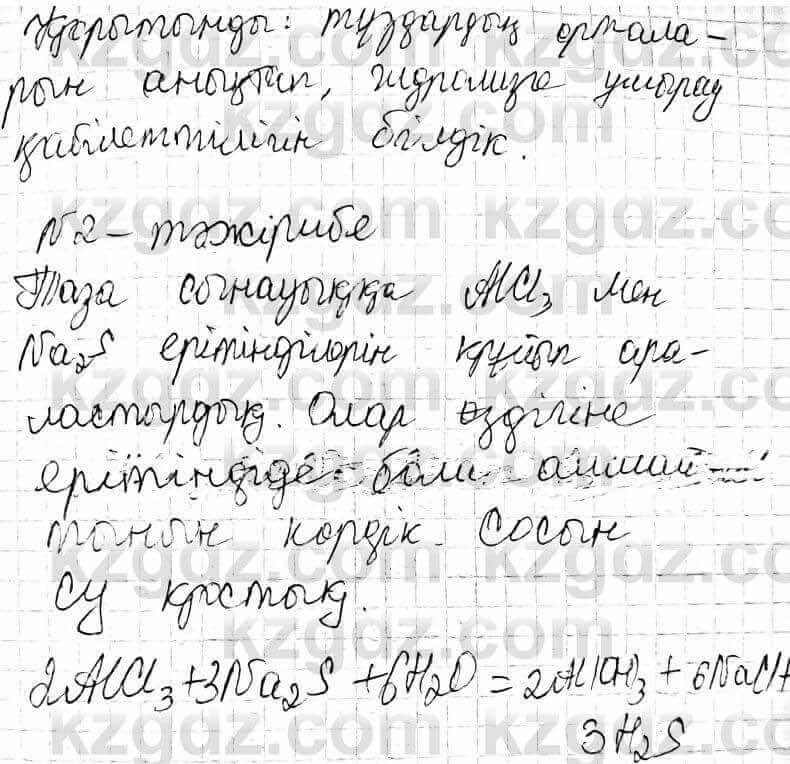 Қорытынды: тұздардың ортала-
рын анықтап, гидролизге ұшырау
қабілеттілігін білдік.
N2 - тәжірибе
Таза сынауыққа AlCl₃ мен
Na₂S ерітінділерін құйып ара-
ластырдық. Олар өзділігіне
ерітіндіде бола алмай-
тынын көрдік. Сосын
су қостық.
2AlCl₃+3Na₂S+6H₂O=2Al(OH)₃+6NaCl+
3H₂S
kzgdz.com